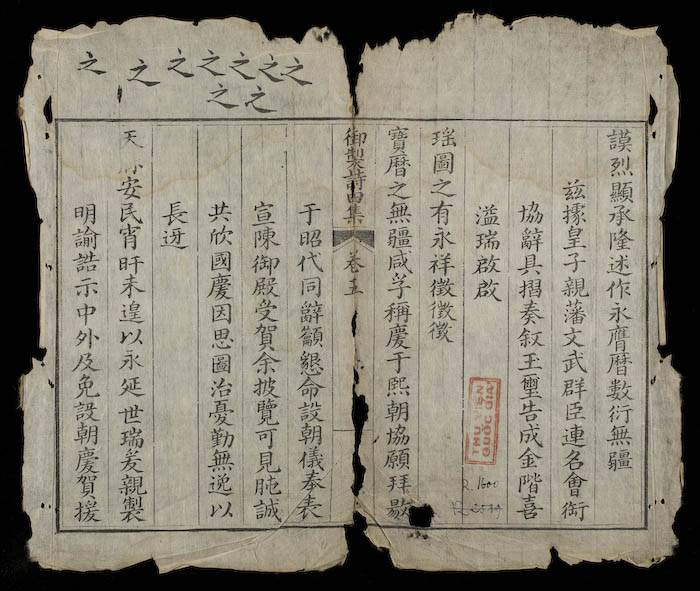 之之之之之之之
之之
謨烈顯承隆述作永膺暦數衍無疆
茲據皇子親藩文武群臣連名會銜
協辭具摺奏叙玉璽告成金階喜
溢瑞啟啟
瑶圖之有永祥徵徵徵
寶暦之無疆咸孚稱慶于熙朝協願拜
御製詩四集
卷五
于昭代同辭籲懇命設朝儀奉表
宣陳御殿受賀余披覽可見肫誠
共欣國慶因思圖治憂勤無逸以
長迓
天安民宵旰未遑以永延世瑞爰親製
明諭誥示中外及免設朝慶賀援
THƯ VIỆN
QUỐC GIA
R.1600